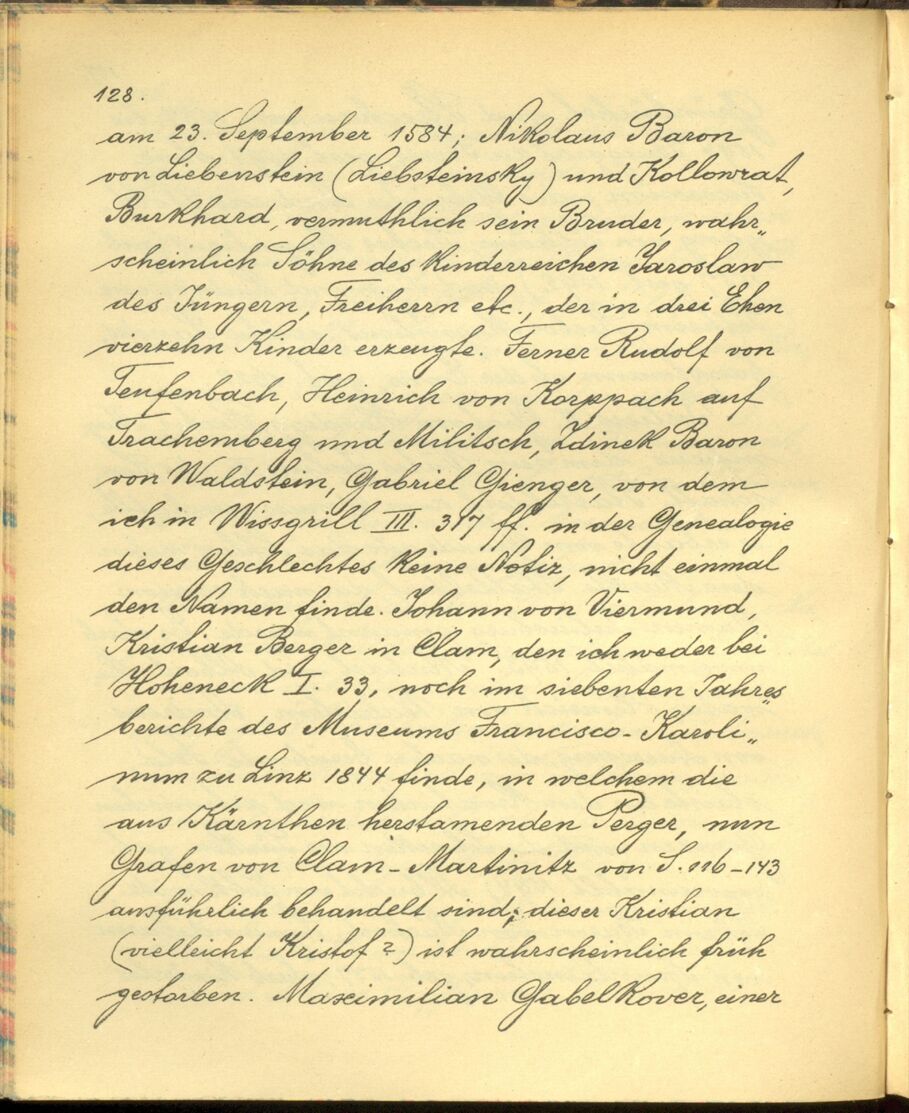 128.
am 23. September 1584; Nikolaus Baron
von Liebenstein (Liebsteinsky) und Kollowrat,
Burkhard, vermuthlich sein Bruder, wahr„
scheinlich Söhne des kinderreichen Jaroslaw
des Jüngern, Freiherrn etc., der in drei Ehen
vierzehn Kinder erzeugte. Ferner Rudolf von
Teufenbach, Heinrich von Korppach auf
Trachemberg und Militsch, Zdinek Baron
von Waldstein, Gabriel Gienger, von dem
ich in Wissgrill III. 317 ff. in der Genealogie
dieses Geschlechtes keine Notiz, nicht einmal
den Namen finde. Johann von Viermund,
Kristian Berger in Clam, den ich weder bei
Hoheneck I. 33, noch im siebenten Jahres„
berichte des Museums Francisco-Karoli„
num zu Linz 1844 finde, in welchem die
aus Kärnthen herstamenden Perger, nun
Grafen von Clam-Martinitz von S. 116-143
ausführlich behandelt sind; dieser Kristian
(vielleicht Kristof?) ist wahrscheinlich früh
gestorben. Maximilian Gabelkover, einer